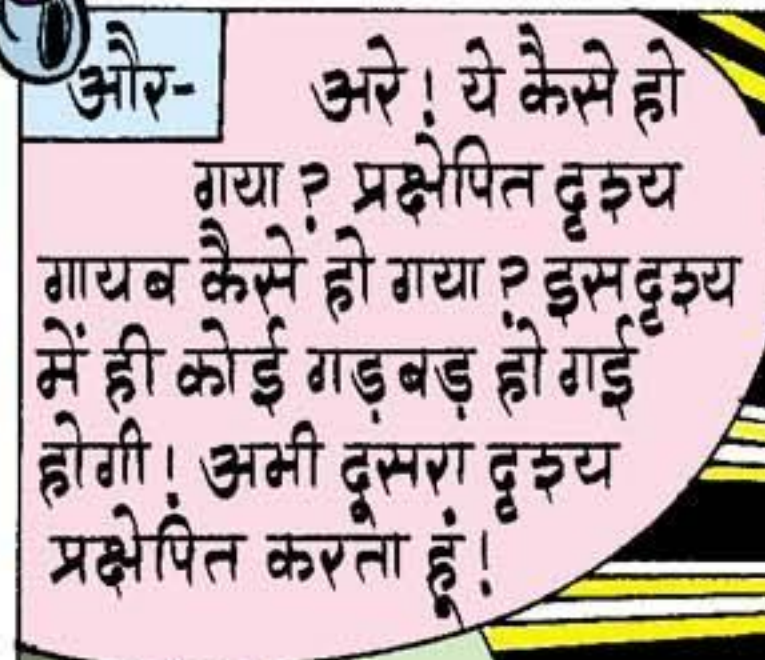 और-
अरे! ये कैसे हो
गया? प्रक्षेपित दृश्य
गायब कैसे हो गया? इस दृश्य
में ही कोई गड़बड़ हो गई
होगी! अभी दूसरा दृश्य
प्रक्षेपित करता हूं!